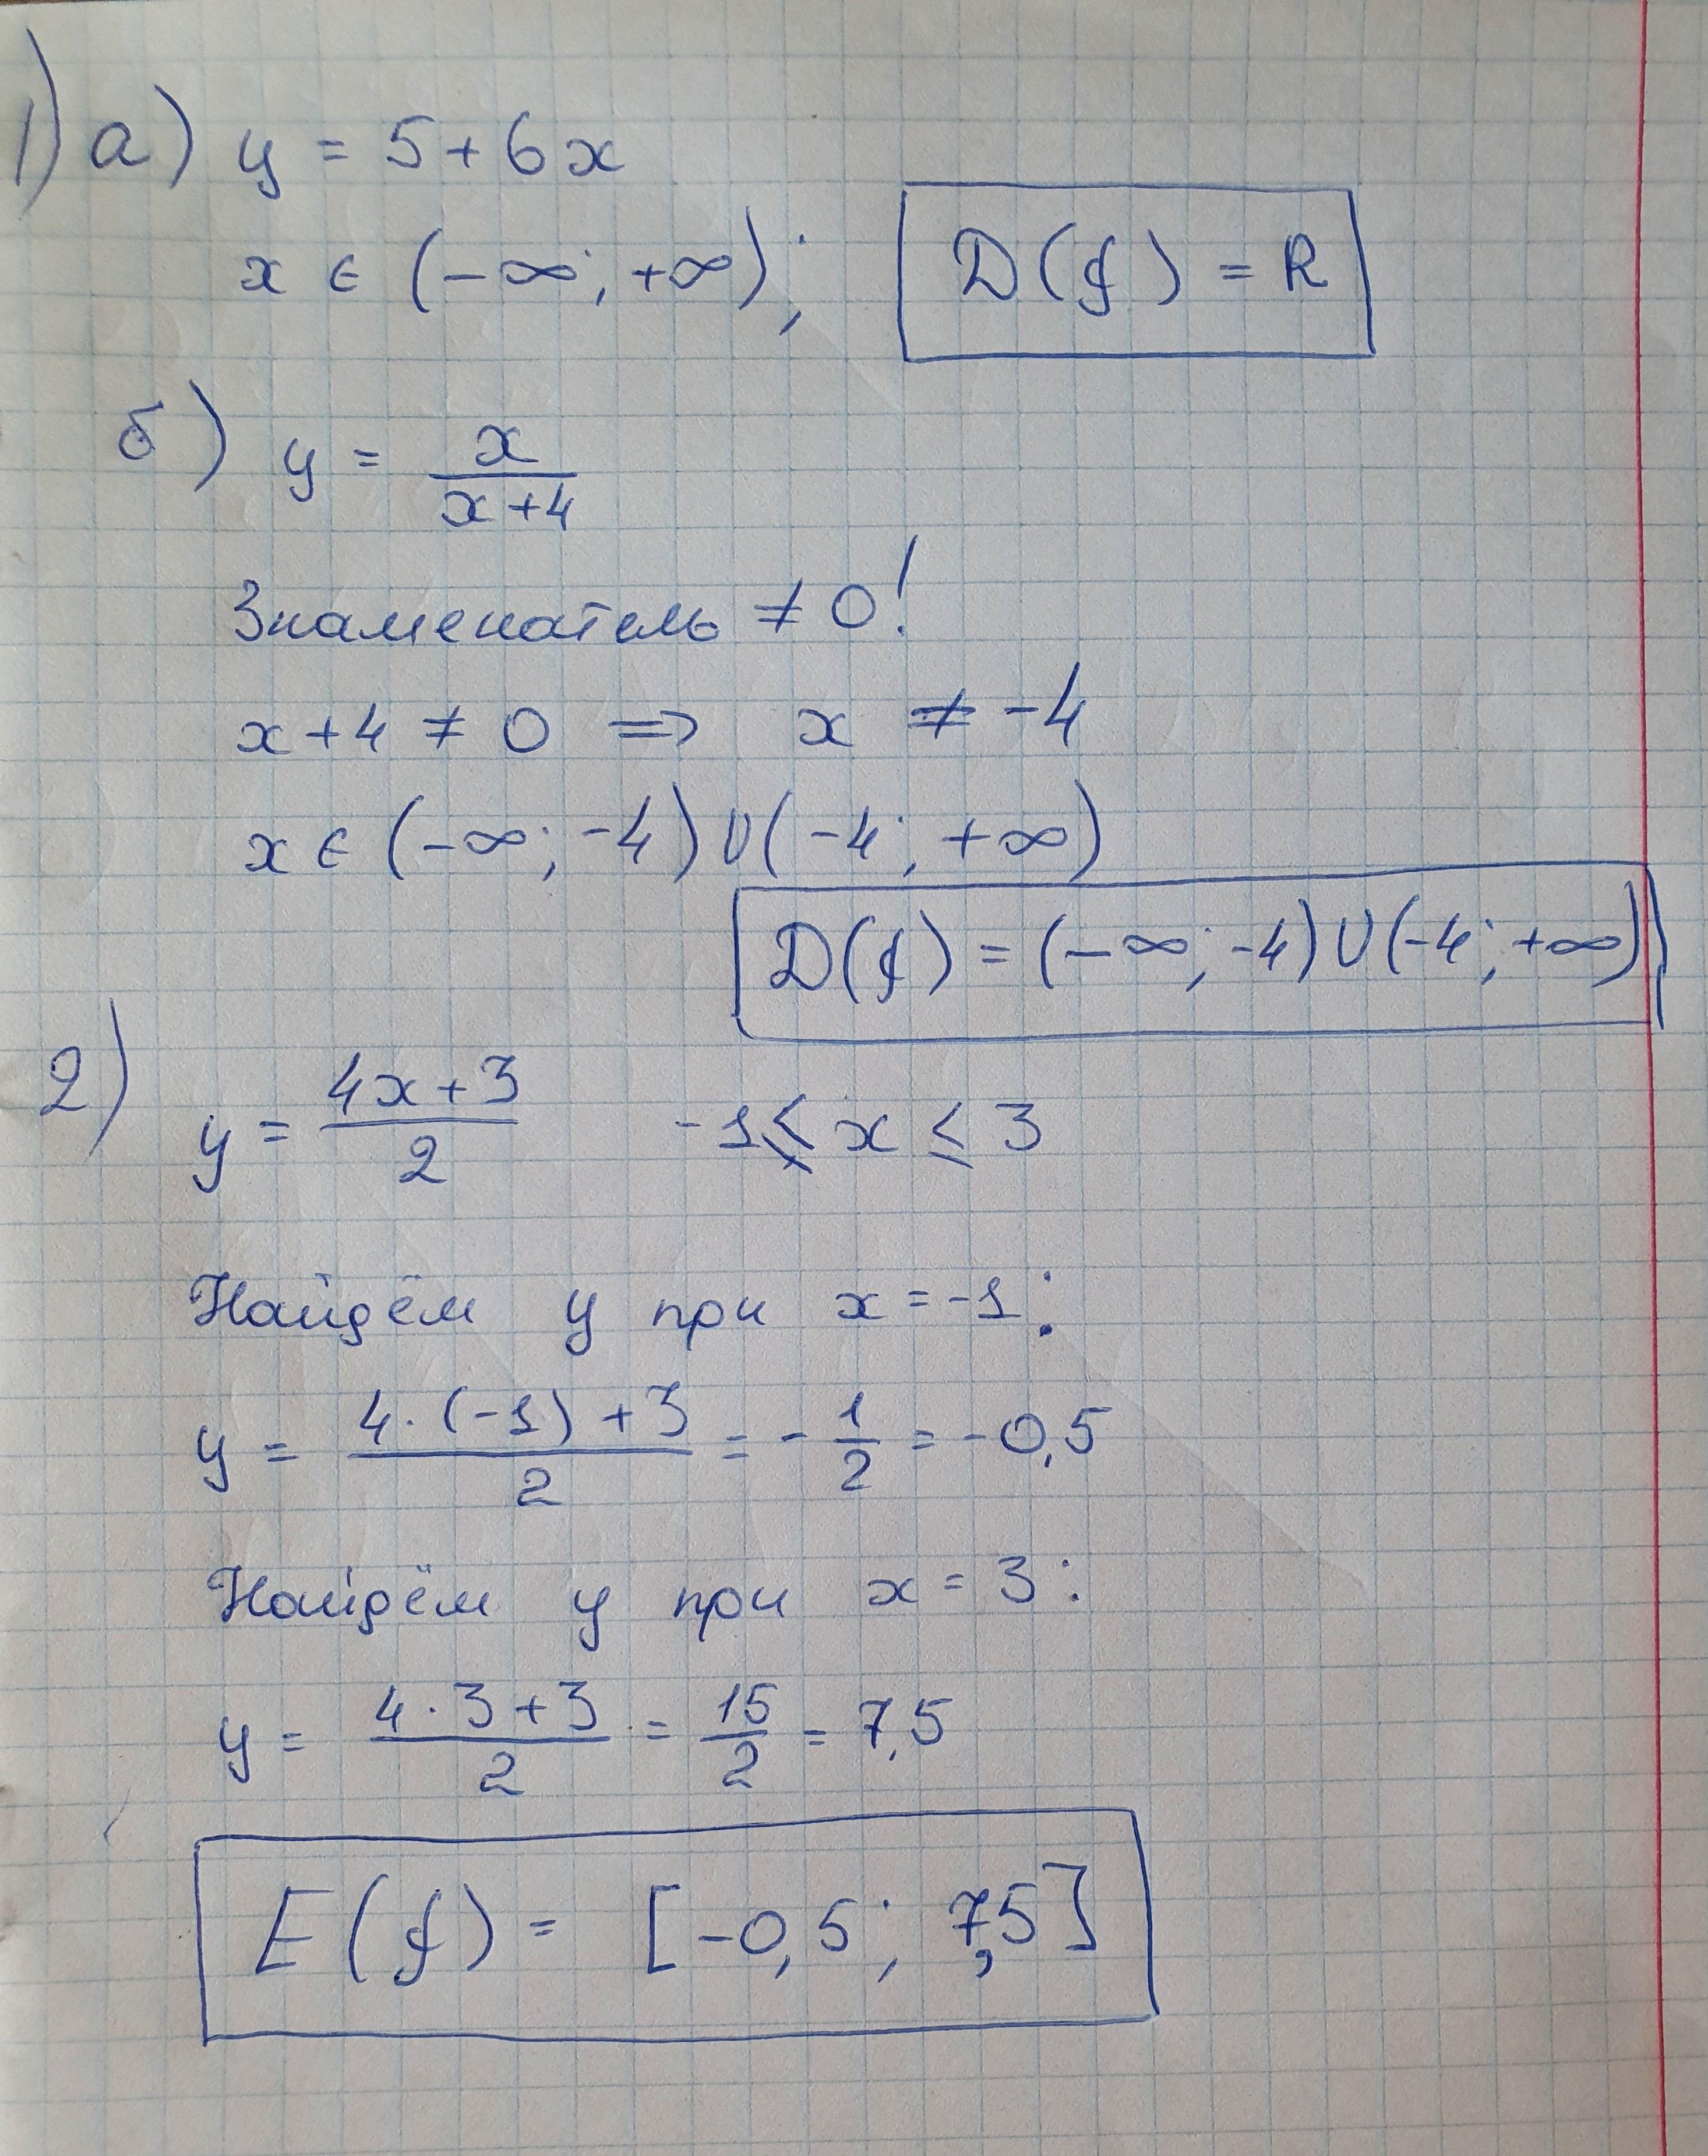 1) а) y = 5 + 6x
x ∈ (-∞; +∞); D(f) = R
б) y = x/(x+4)
Знаменатель ≠ 0!
x + 4 ≠ 0 => x ≠ -4
x ∈ (-∞; -4) ∪ (-4; +∞)
D(f) = (-∞; -4) ∪ (-4; +∞)
2) y = (4x+3)/2 -1 ≤ x ≤ 3
Найдём y при x = -1:
y = (4·(-1)+3)/2 = -1/2 = -0,5
Найдём y при x = 3:
y = (4·3+3)/2 = 15/2 = 7,5
E(f) = [-0,5; 7,5]